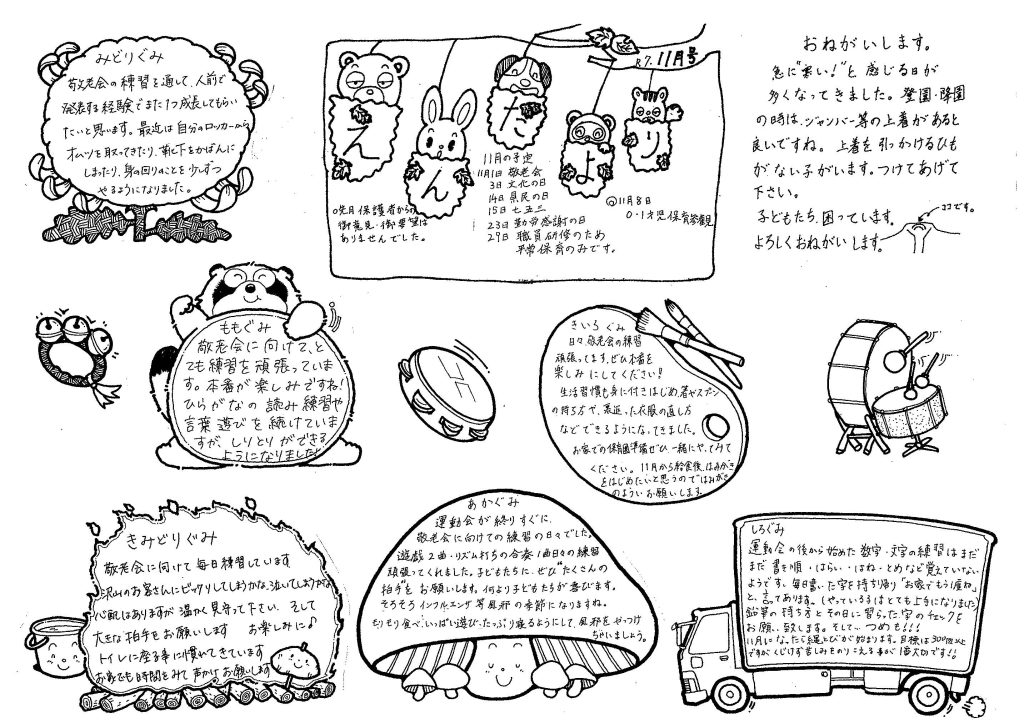 みどりぐみ
敬老会の練習を通して、人前で
発表する経験でまた1つ成長してもらい
たいと思います。最近は自分のロッカーから
オムツを取ってきたり、靴下をかばんに
しまったり、身の回りのことを少しずつ
やるようになりました。
R7. 11月号
えんだより
11月の予定
11月1日 敬老会
3日 文化の日
14日 県民の日
15日 七五三
23日 勤労感謝の日
29日 職員研修のため
平常保育のみです。
◎11月8日
0・1才児保育参観
○先月保護者からの
御意見・御希望は
ありませんでした。
おねがいします。
急に“寒い!”と感じる日が
多くなってきました。登園・降園
の時は、ジャンパー等の上着があると
良いですね。上着を引っかけるひも
がない子がいます。つけてあげて
下さい。
子どもたち、困っています。
よろしくおねがいします。
ココです。
ももぐみ
敬老会に向けて、と
ても練習を頑張っていま
す。本番が楽しみですね!
ひらがなの読み練習や
言葉遊びを続けていま
すが、しりとりができる
ようになりました!
きいろぐみ
日々敬老会の練習
頑張ってます。ぜひ本番を
楽しみにしてください!
生活習慣も身に付きはじめ箸やスプーン
の持ち方や、裏返った衣服の直し方
などできるようになってきました。
お家での保育園準備ぜひ一緒にやってみて
ください。11月から給食後、はみがき
をはじめたいと思うのではみがき
のようい お願いします。
きみどりぐみ
敬老会に向けて毎日練習しています
沢山のお客さんにビックリしてしまうかな、泣いてしまうかな
心配はありますが温かく見守って下さい そして
大きな拍手をお願いします お楽しみに♪
トイレに座る事に慣れてきています
お家でも時間をみて声かけお願いします
あかぐみ
運動会が終りすぐに、
敬老会に向けての練習の日々でした。
遊戯2曲・リズム打ちの合奏1曲日々の練習
頑張ってくれました。子どもたちに、ぜひ“たくさんの
拍手”をお願いします。何より子どもたちが喜びます。
そろそろインフルエンザ等風邪の季節になりますね。
もりもり食べ、いっぱい遊び、たっぷり寝るようにして、風邪をやっつけ
ちゃいましょう。
しろぐみ
運動会の後から始めた数字・文字の練習はまだ
まだ書き順・はらい・はね・とめなど覚えていない
ようです。毎日書いた字を持ち帰り“お家でもう1度ね”
と、言ってあります。(やっている子はとても上手になりました)
鉛筆の持ち方とその日に習った字のチェックを
お願い致します。そして、つめも!!!
11月になったら縄とびが始まります。目標は300回以上
ですがくじけず苦しみをのりこえる事が1番大切です!!